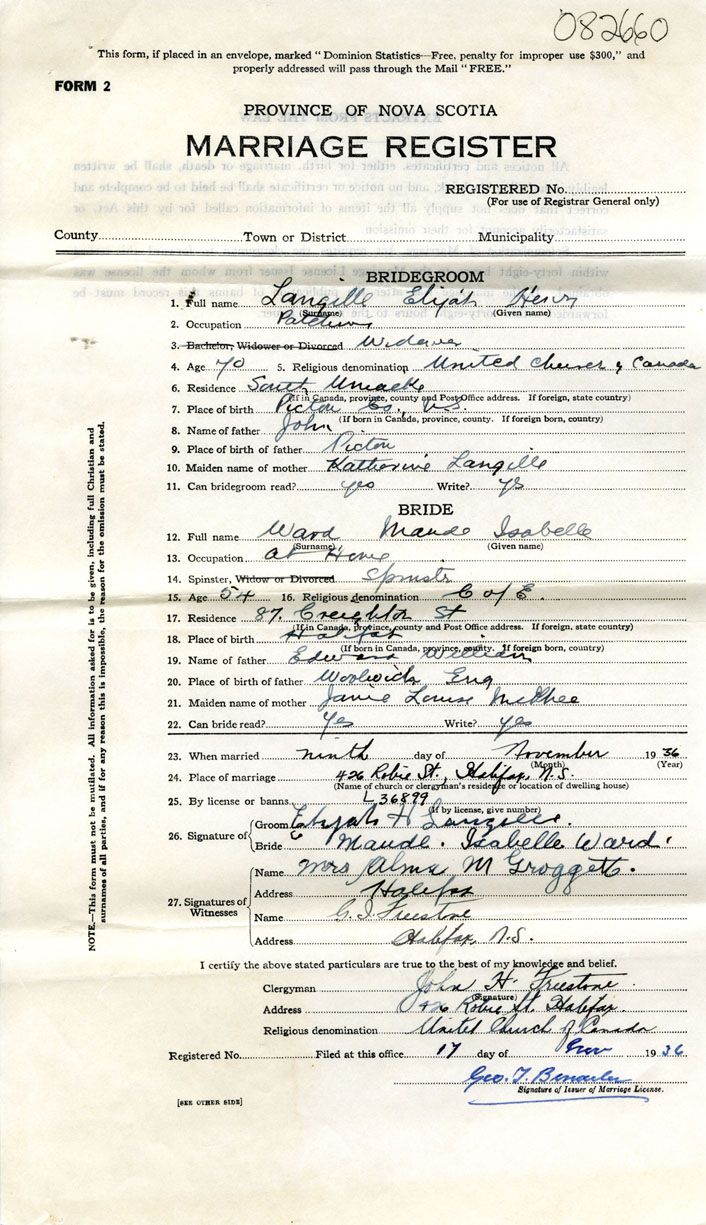 082660
This form, if placed in an envelope, marked "Dominion Statistics—Free, penalty for improper use $300," and
properly addressed will pass through the Mail "FREE."
FORM 2
PROVINCE OF NOVA SCOTIA
MARRIAGE REGISTER
REGISTERED No.
(For use of Registrar General only)
County Town or District Municipality
BRIDEGROOM
1. Full name Langille Elijah Henry
(Surname) (Given name)
2. Occupation
3. Bachelor, Widower or Divorced Widower
4. Age 70 5. Religious denomination United Church of Canada
6. Residence South Uniacke
(If in Canada, province, county and Post Office address. If foreign, state country)
7. Place of birth Pictou Co., N.S.
(If born in Canada, province, county. If foreign born, country)
8. Name of father John
9. Place of birth of father Pictou
10. Maiden name of mother Katherine Langille
11. Can bridegroom read? yes Write? yes
BRIDE
12. Full name Ward Maude Isabelle
(Surname) (Given name)
13. Occupation at Home
14. Spinster, Widow or Divorced Spinster
15. Age 54 16. Religious denomination C of E.
17. Residence 87 Creighton St
(If in Canada, province, county and Post Office address. If foreign, state country)
18. Place of birth Halifax
(If born in Canada, province, county. If foreign born, country)
19. Name of father Edward William
20. Place of birth of father Woolwich Eng
21. Maiden name of mother Janie Louise McPhee
22. Can bride read? Yes Write? yes
23. When married ninth day of November 1936
(Month) (Year)
24. Place of marriage 426 Robie St., Halifax, N.S.
(Name of church or clergyman's residence or location of dwelling house)
25. By license or banns L 36899
(If by license, give number)
26. Signature of
Groom Elijah H Langille.
Bride Maude. Isabelle Ward.
27. Signatures of Witnesses
Name Mrs Alma M Groggett.
Address Halifax
Name G. I Freestone
Address Halifax, N.S.
I certify the above stated particulars are true to the best of my knowledge and belief.
Clergyman John H. Freestone.
(Signature)
Address 426 Robie St. Halifax.
Religious denomination United Church of Canada
Registered No. Filed at this office 17 day of Nov 1936
Geo. T.
Signature of Issuer of Marriage License.
[SEE OTHER SIDE]
NOTE.—This form must not be mutilated. All information asked for is to be given, including full Christian and
surnames of all parties, and if for any reason this is impossible, the reason for the omission must be stated.